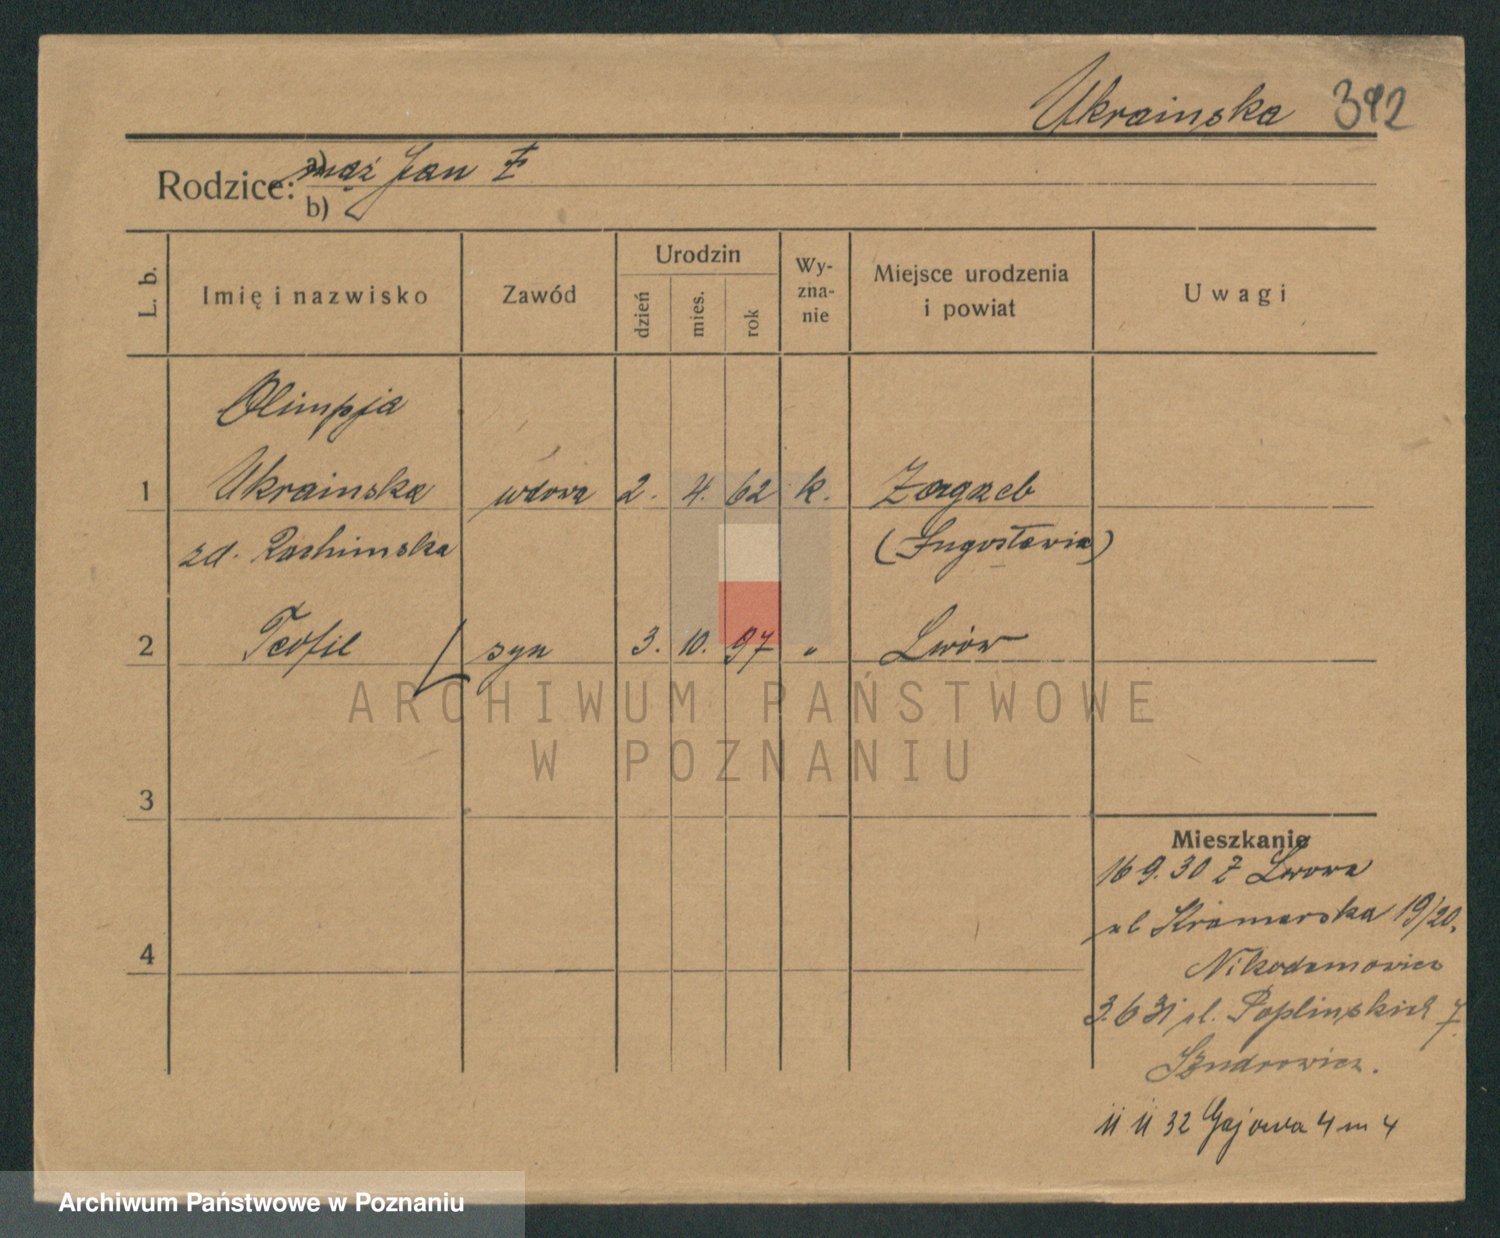 Ukrainska 392
Rodzice: a) mąż Jan Ł
b)
L. b. Imię i nazwisko Zawód Urodzin dzień mies. rok Wyznanie Miejsce urodzenia i powiat Uwagi
Olimpja
1 Ukrainska wdowa 2. 4. 62 k. Zagrzeb
zd. Rachimska (Jugosławia)
2 Teofil syn 3. 10. 97 " Lwów
ARCHIWUM PAŃSTWOWE
W POZNANIU
3
Mieszkanie
16 9. 30 z Lwowa
ul Kramarska 19/20.
4
Nikodemowicz
3. 6 31 ul. Poplinskich 7.
11 11 32 Gajowa 4 m 4
Archiwum Państwowe w Poznaniu